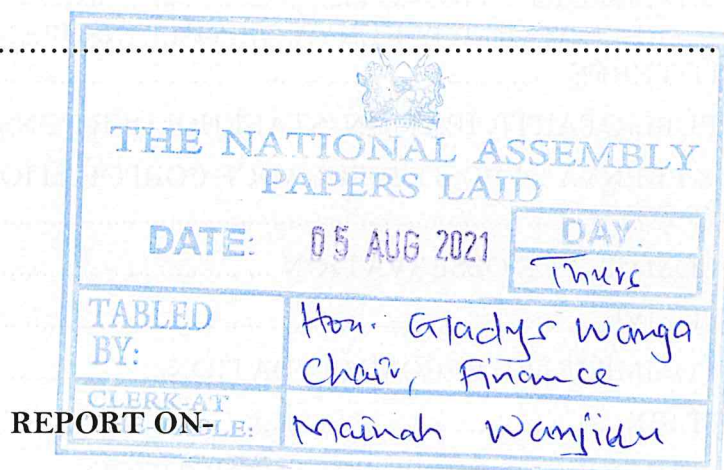 THE NATIONAL ASSEMBLY
PAPERS LAID
DATE: 05 AUG 2021
DAY.
Thurs
TABLED
BY:
Hon. Gladys Wanga
Chair, Finance
CLERK-AT
THE-TABLE:
Mainah Wanjiku
REPORT ON-